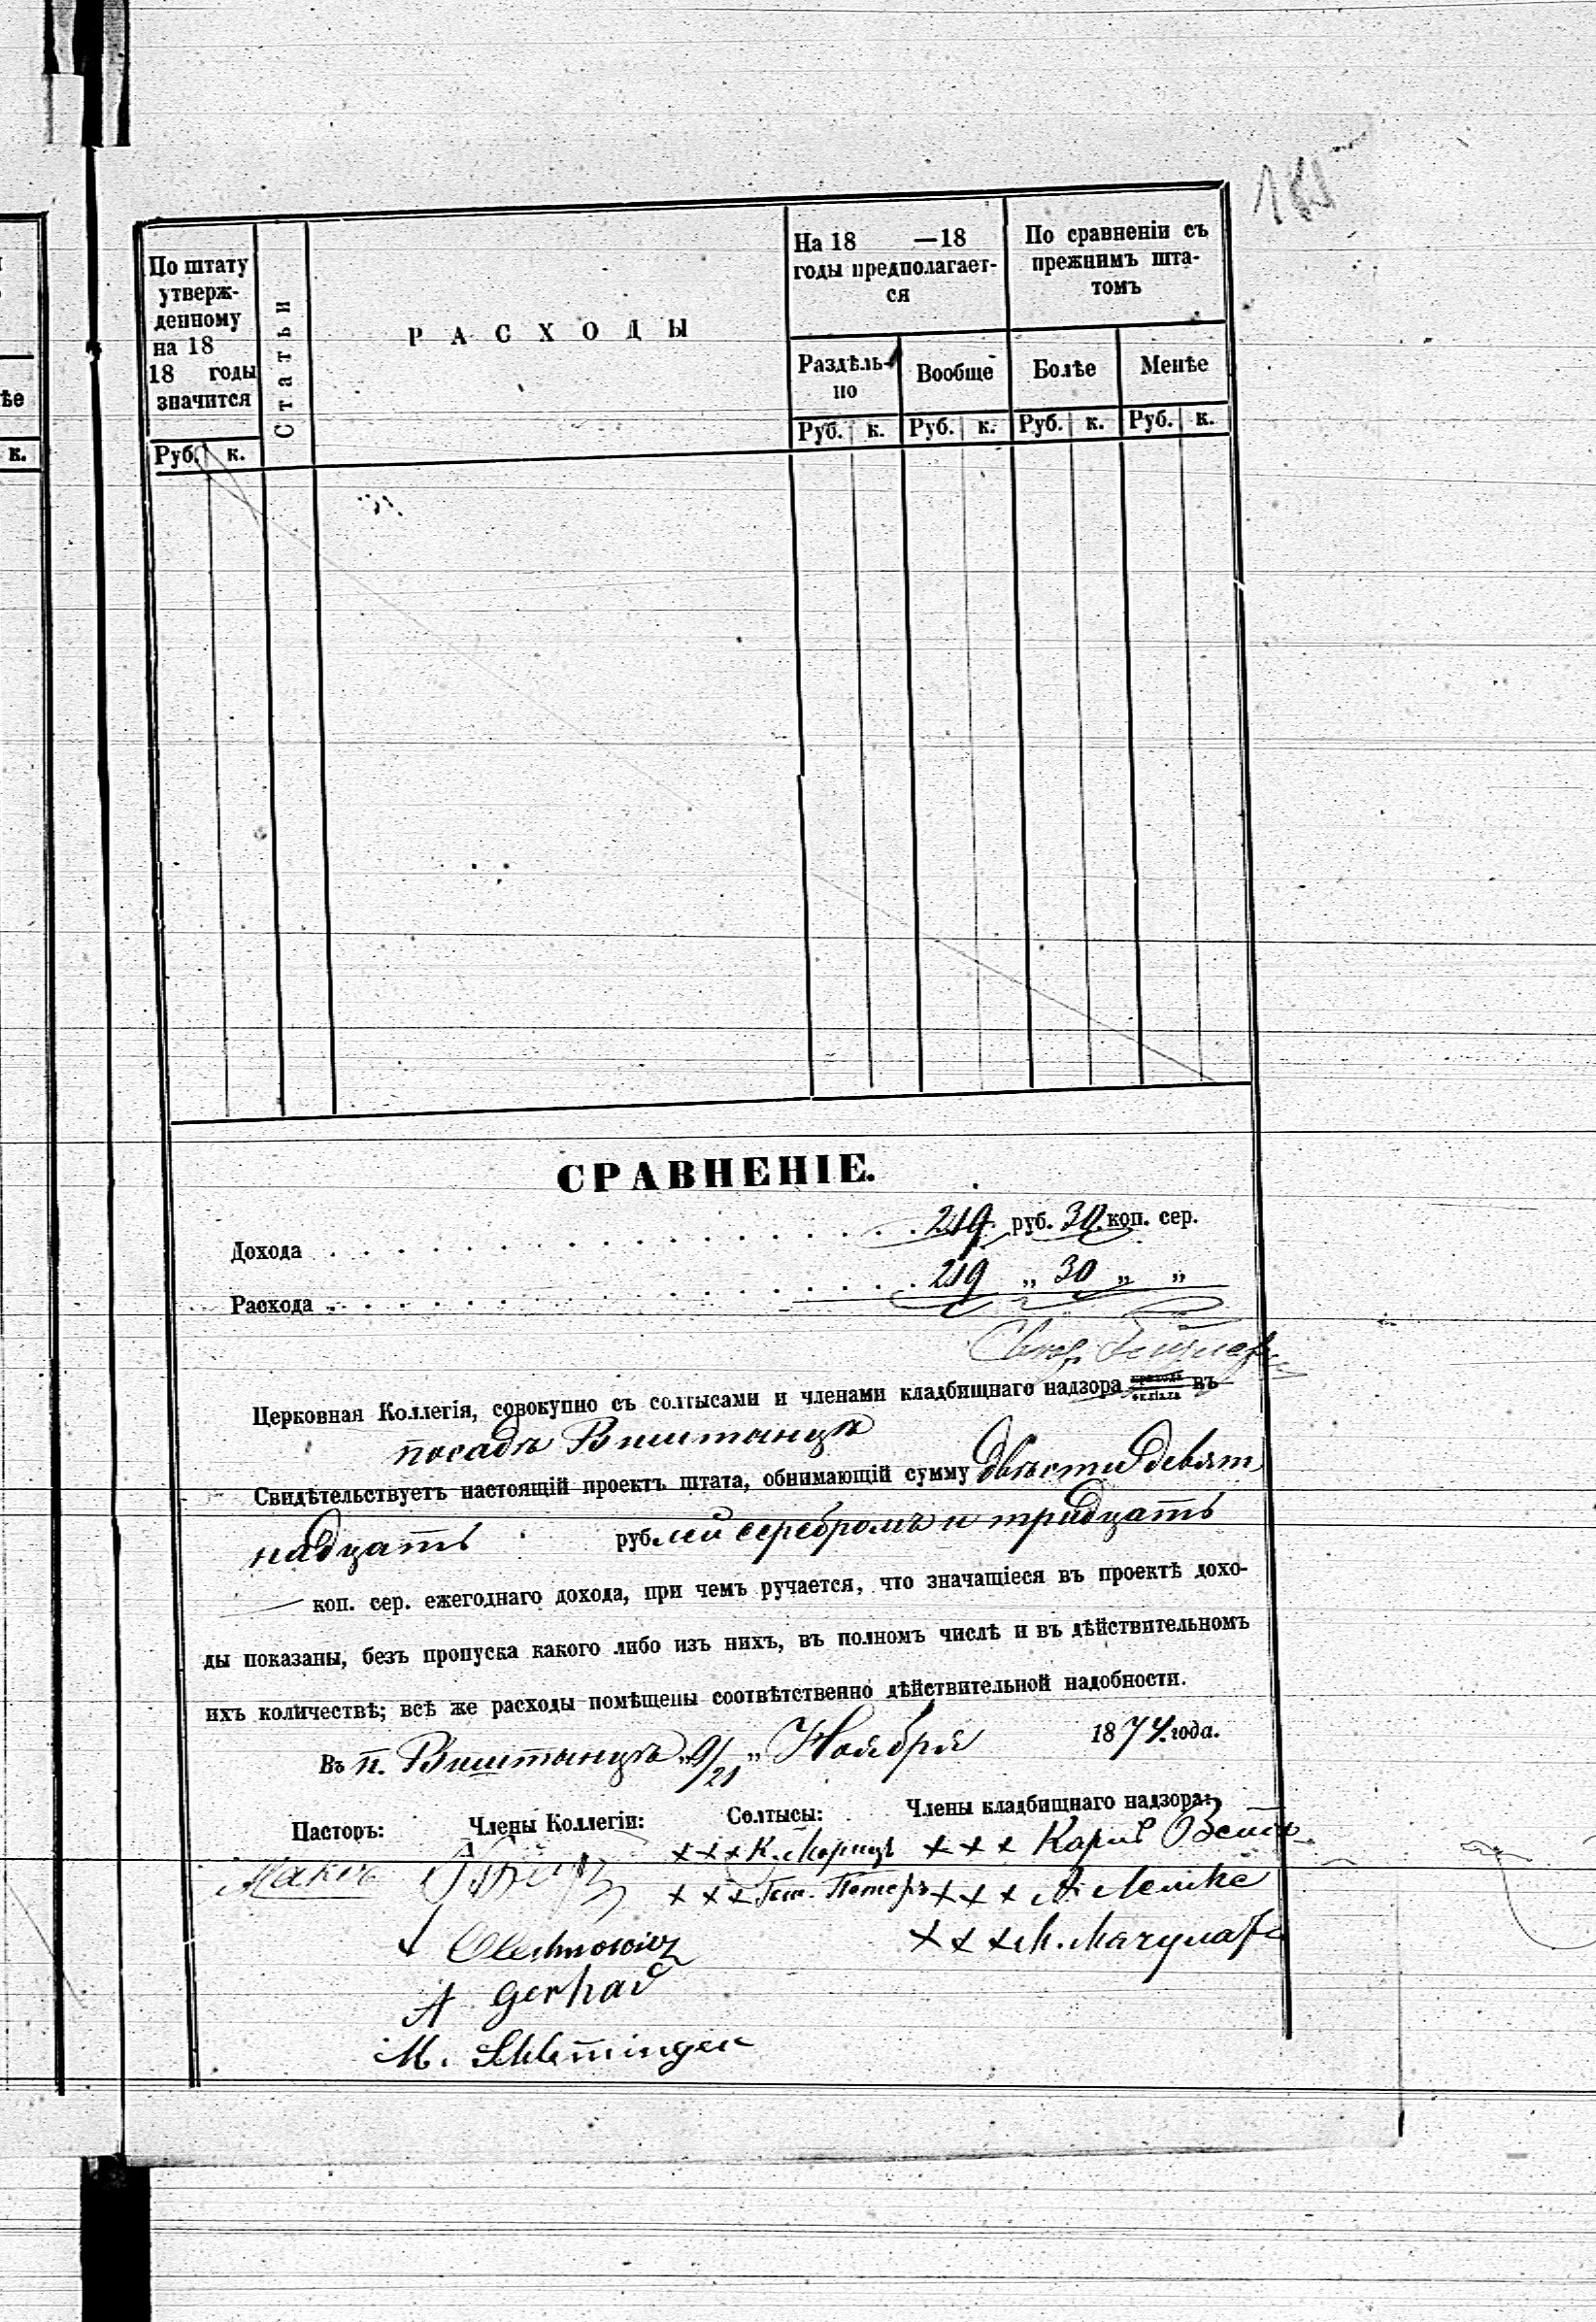 По штату
утверж-
денному
на 18
18 годы
значится
Руб. к.
Статьи
РАСХОДЫ
На 18 —18
годы предполагает-
ся
Раздѣль-
но
Вообще
Руб. к. Руб. к.
По сравненіи съ
прежнимъ шта-
томъ
Болѣе Менѣе
Руб. к. Руб. к.
ѣе
к.
СРАВНЕНІЕ.
Дохода . . . . . . . . . . . . . . . 219 руб. 30 коп. сер.
Расхода . . . . . . . . . . . . . . . 219 „ 30 „ „
Церковная Коллегія, совокупно съ солтысами и членами кладбищнаго надзора въ
посадѣ Виштынцѣ
Свидѣтельствуетъ настоящій проектъ штата, обнимающій сумму двѣсти девят
надцать рублей серебромъ и тридцать
коп. сер. ежегоднаго дохода, при чемъ ручается, что значащіеся въ проектѣ дохо-
ды показаны, безъ пропуска какого либо изъ нихъ, въ полномъ числѣ и въ дѣйствительномъ
ихъ количествѣ; всѣ же расходы помѣщены соотвѣтственно дѣйствительной надобности.
Въ п. Виштынцѣ „9/21„ Ноября 1874 года.
Пасторъ: Члены Коллегіи: Солтысы: Члены кладбищнаго надзора:
+++ К. Морицъ +++ Карлъ
+++ Петеръ +++ A Lemke
Olechnowicz +++ М.
A Gerhad
M. Schlemminger